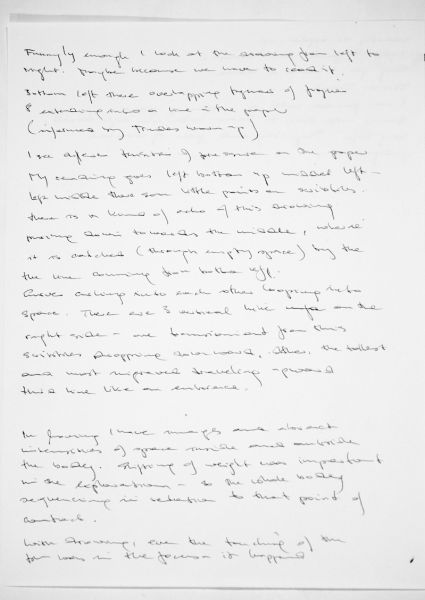 Funnily enough I look at the drawing from left to
right. Maybe because we have to read it.
Bottom left there overlapping types of
& extending into a line in the paper
(informed by warm up)
I see different of pressure on the paper
My reading goes left bottom up middle left –
left middle there some little points or scribbles.
there is a kind of echo of this drawing
moving down towards the middle, where
it is catched (through empty space) by the
the line coming from bottom left.
Curves arching into each other looping into
space. There are 3 vertical line on the
right side – one from this
scribbles dropping downward, other, the tallest
and most traveling upward
third line like an embrace.
In moving I have images and abstract
intensities of space inside and outside
the body. Shifting of weight was important
in the exploration – so the whole body
sequencing in relation to that point of
contact.
With drawing, even the touching of the
was in the focus it happened